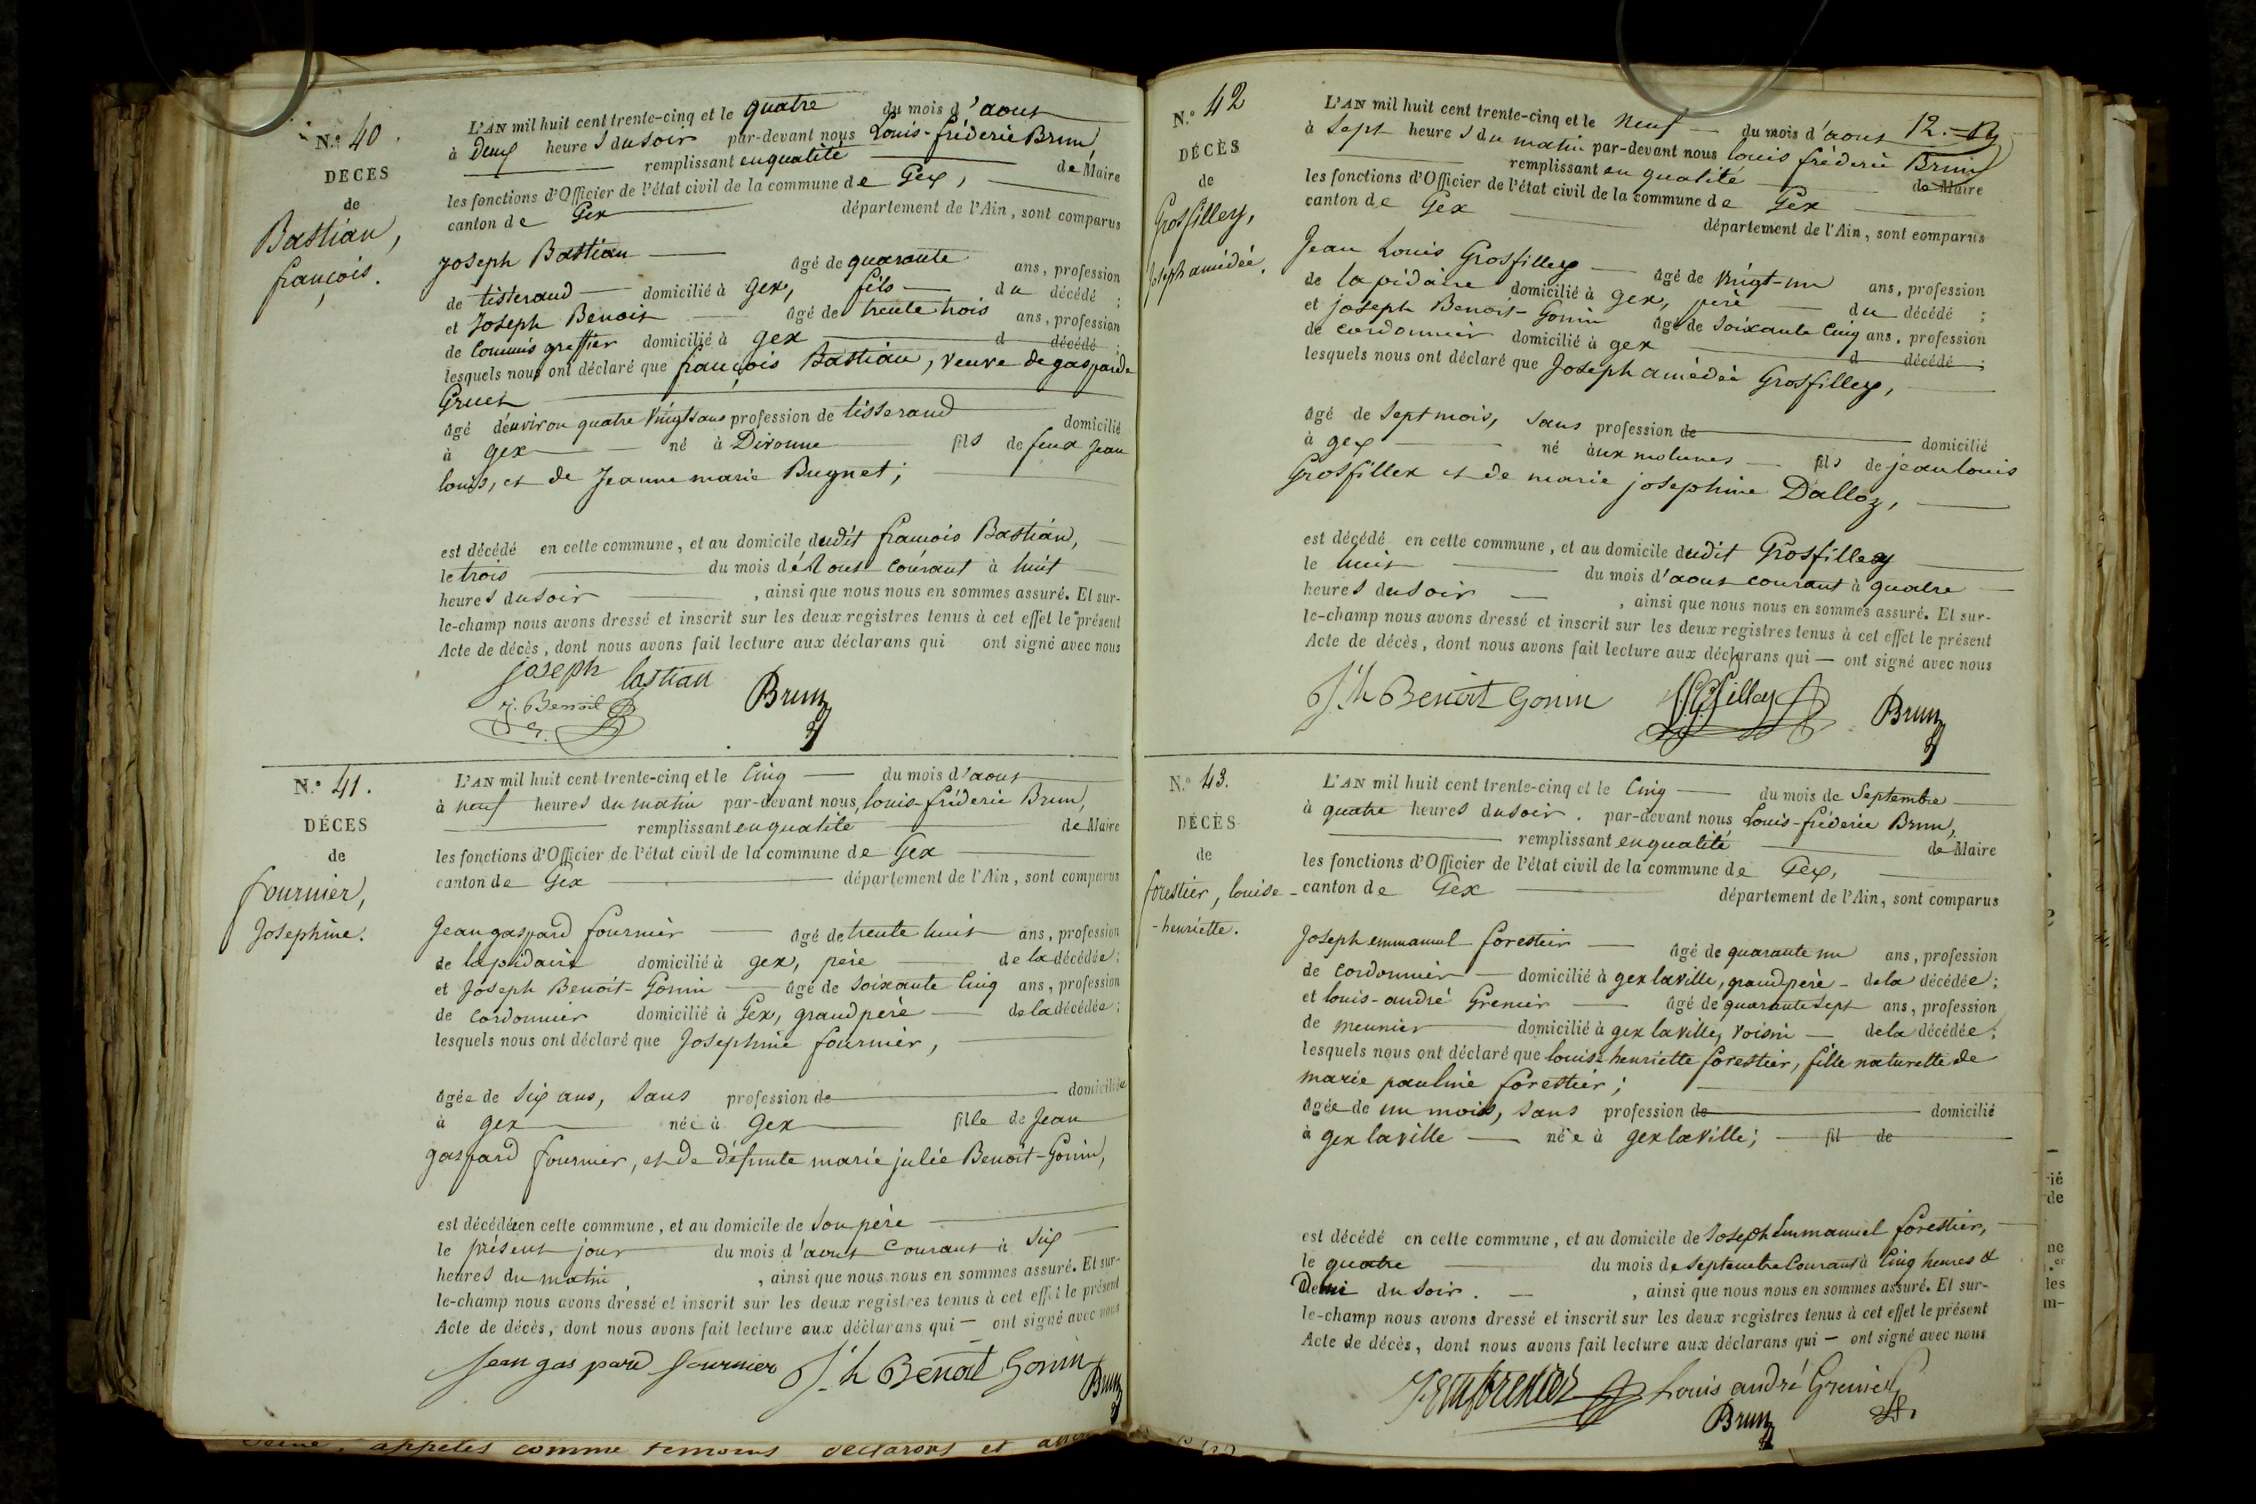 N.o 40.
DECES
de
Bastian,
françois.
L'AN mil huit cent trente-cinq et le quatre du mois d'aout
à deux heures du soir par-devant nous Louis-fréderic Brun,
remplissant en qualité de Maire
les fonctions d'Officier de l'état civil de la commune de Gex,
canton de Gex département de l'Ain, sont comparus
Joseph Bastian âgé de quarante ans, profession
de tisserand domicilié à Gex, fils du décédé ;
et Joseph Benoit âgé de trente trois ans, profession
de commis greffier domicilié à gex d décédé ;
lesquels nous ont déclaré que françois Bastian, veuve de gasparde
Gruet
âgé d'environ quatre vingts ans profession de tisserand domicilié
à gex né à Divonne fils de feux Jean
louis, et de Jeanne marie Bugnet ;
est décédé en cette commune, et au domicile dudit françois Bastian,
le trois du mois d'Aout courant à huit
heures du soir , ainsi que nous nous en sommes assuré. Et sur-
le-champ nous avons dressé et inscrit sur les deux registres tenus à cet effet le présent
Acte de décès, dont nous avons fait lecture aux déclarans qui ont signé avec nous
joseph bastian
j. Benoit Brun
N.o 41.
DÉCES
de
fournier,
Josephine.
L'AN mil huit cent trente-cinq et le Cinq du mois d'aout
à neuf heures du matin par-devant nous, louis-fréderic Brun,
remplissant en qualité de Maire
les fonctions d'Officier de l'état civil de la commune de Gex
canton de Gex département de l'Ain, sont comparus
Jean gaspard fournier âgé de trente huit ans, profession
de lapidaire domicilié à gex, père de la décédée ;
et Joseph Benoit-Gonin âgé de soixante Cinq ans, profession
de cordonnier domicilié à Gex, grand père de la décédée ;
lesquels nous ont déclaré que Josephine fournier,
âgée de six ans, sans profession de domiciliée
à gex née à Gex fille de Jean
gaspard fournier, et de défunte marie julie Benoit-Gonin,
est décédée en cette commune, et au domicile de son père
le présent jour du mois d'aout courant à six
heures du matin , ainsi que nous nous en sommes assuré. Et sur-
le-champ nous avons dressé et inscrit sur les deux registres tenus à cet effet le présent
Acte de décès, dont nous avons fait lecture aux déclarans qui — ont signé avec nous
Jean gaspard fournier J.h Benoit Gonin
Brun
appelés comme temoins declarons et
N.o 42
DÉCÈS
de
Grosfilley,
joseph amédée.
L'AN mil huit cent trente-cinq et le neuf du mois d'aout 12.
à sept heures du matin par-devant nous louis fréderic Brun
remplissant en qualité de Maire
les fonctions d'Officier de l'état civil de la commune de Gex
canton de Gex département de l'Ain, sont comparus
Jean Louis Grosfilley âgé de vingt-un ans, profession
de lapidaire domicilié à gex, père du décédé ;
et joseph Benoit-Gonin âgé de soixante Cinq ans, profession
de cordonnier domicilié à gex d décédé ;
lesquels nous ont déclaré que Joseph amédée Grosfilley,
âgé de sept mois, sans profession de domicilié
à gex né aux molunes fils de jean louis
Grosfilley et de marie josephine Dalloz,
est décédé en cette commune, et au domicile dudit Grosfilley
le huit du mois d'aout courant à quatre
heures du soir , ainsi que nous nous en sommes assuré. Et sur-
le-champ nous avons dressé et inscrit sur les deux registres tenus à cet effet le présent
Acte de décès, dont nous avons fait lecture aux déclarans qui — ont signé avec nous
J.h Benoit Gonin Brun
N.o 43.
DÉCÈS
de
forestier, louise-
-henriette.
L'AN mil huit cent trente-cinq et le Cinq du mois de Septembre
à quatre heures du soir. par-devant nous Louis-fréderic Brun,
remplissant en qualité de Maire
les fonctions d'Officier de l'état civil de la commune de Gex,
canton de Gex département de l'Ain, sont comparus
Joseph emmanuel forestier âgé de quarante un ans, profession
de cordonnier domicilié à gex la ville, grand père de la décédée ;
et louis-andré Grenier âgé de quarante sept ans, profession
de meunier domicilié à gex la ville, voisin de la décédée ;
lesquels nous ont déclaré que louise henriette forestier, fille naturelle de
marie pauline forestier ;
âgée de un mois, sans profession de domicilié
à gex la ville née à gex la ville ; fil de
est décédé en cette commune, et au domicile de Joseph Emmanuel forestier,
le quatre du mois de septembre Courant à Cinq heures &
Demi du soir. , ainsi que nous nous en sommes assuré. Et sur-
le-champ nous avons dressé et inscrit sur les deux registres tenus à cet effet le présent
Acte de décès, dont nous avons fait lecture aux déclarans qui — ont signé avec nous
Louis andré Grenier
Brun
ié
de
ne
les
m-